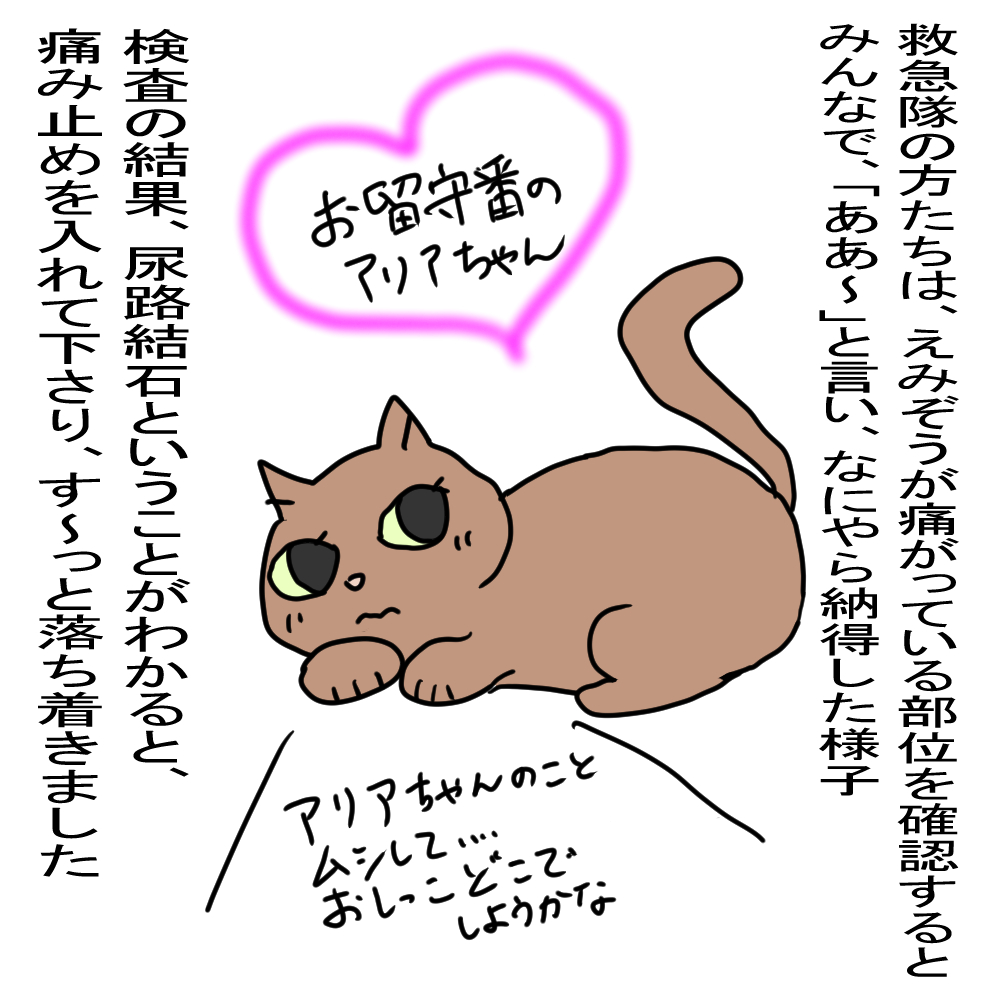 救急隊の方たちは、えみぞうが痛がっている部位を確認すると
みんなで、「ああ～」と言い、なにやら納得した様子
お留守番の
アリアちゃん
アリアちゃんのこと
ムシして….
おしっこどこで
しようかな
検査の結果、尿路結石ということがわかると、
痛み止めを入れて下さり、す～っと落ち着きました